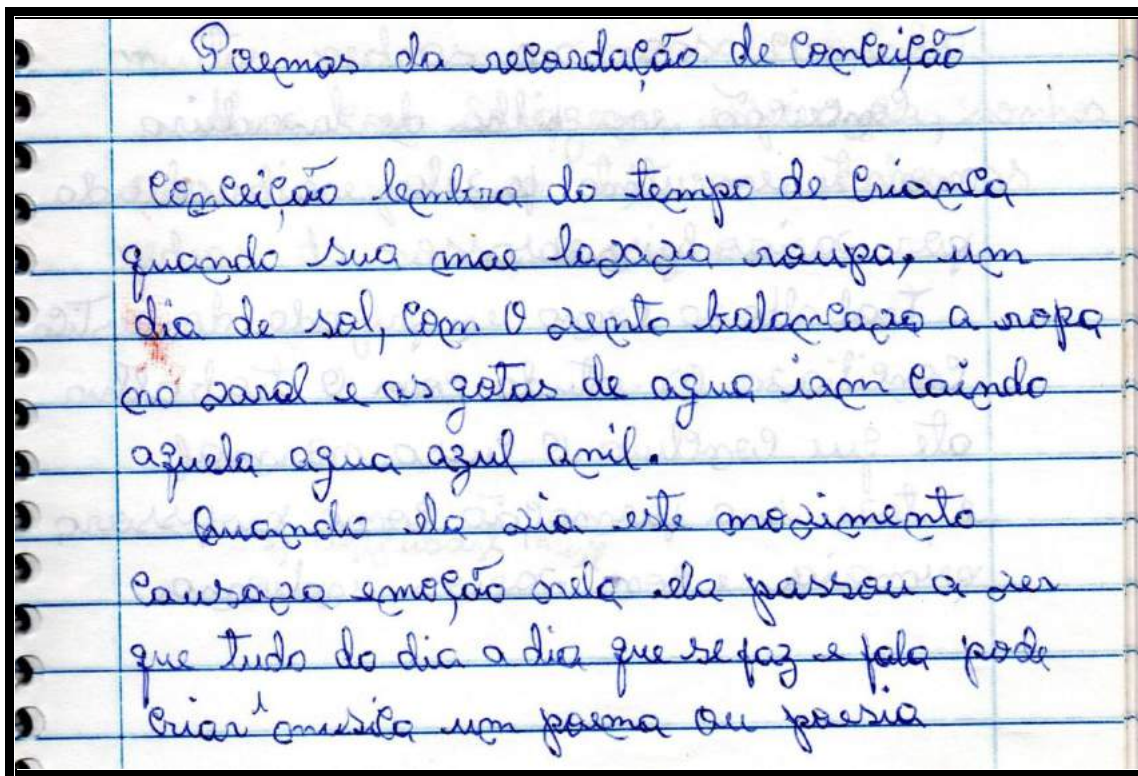 Poemas da recordação de Conceição
Conceição lembra do tempo de criança
quando sua mae lavava roupa, um
dia de sol, com o vento balançava a ropa
no varal e as gotas de agua iam caindo
aquela agua azul anil.
Quando ela via este movimento
causava emoção nela ela passou a ver
que tudo do dia a dia que se faz e fala pode
criar musica um poema ou poesia